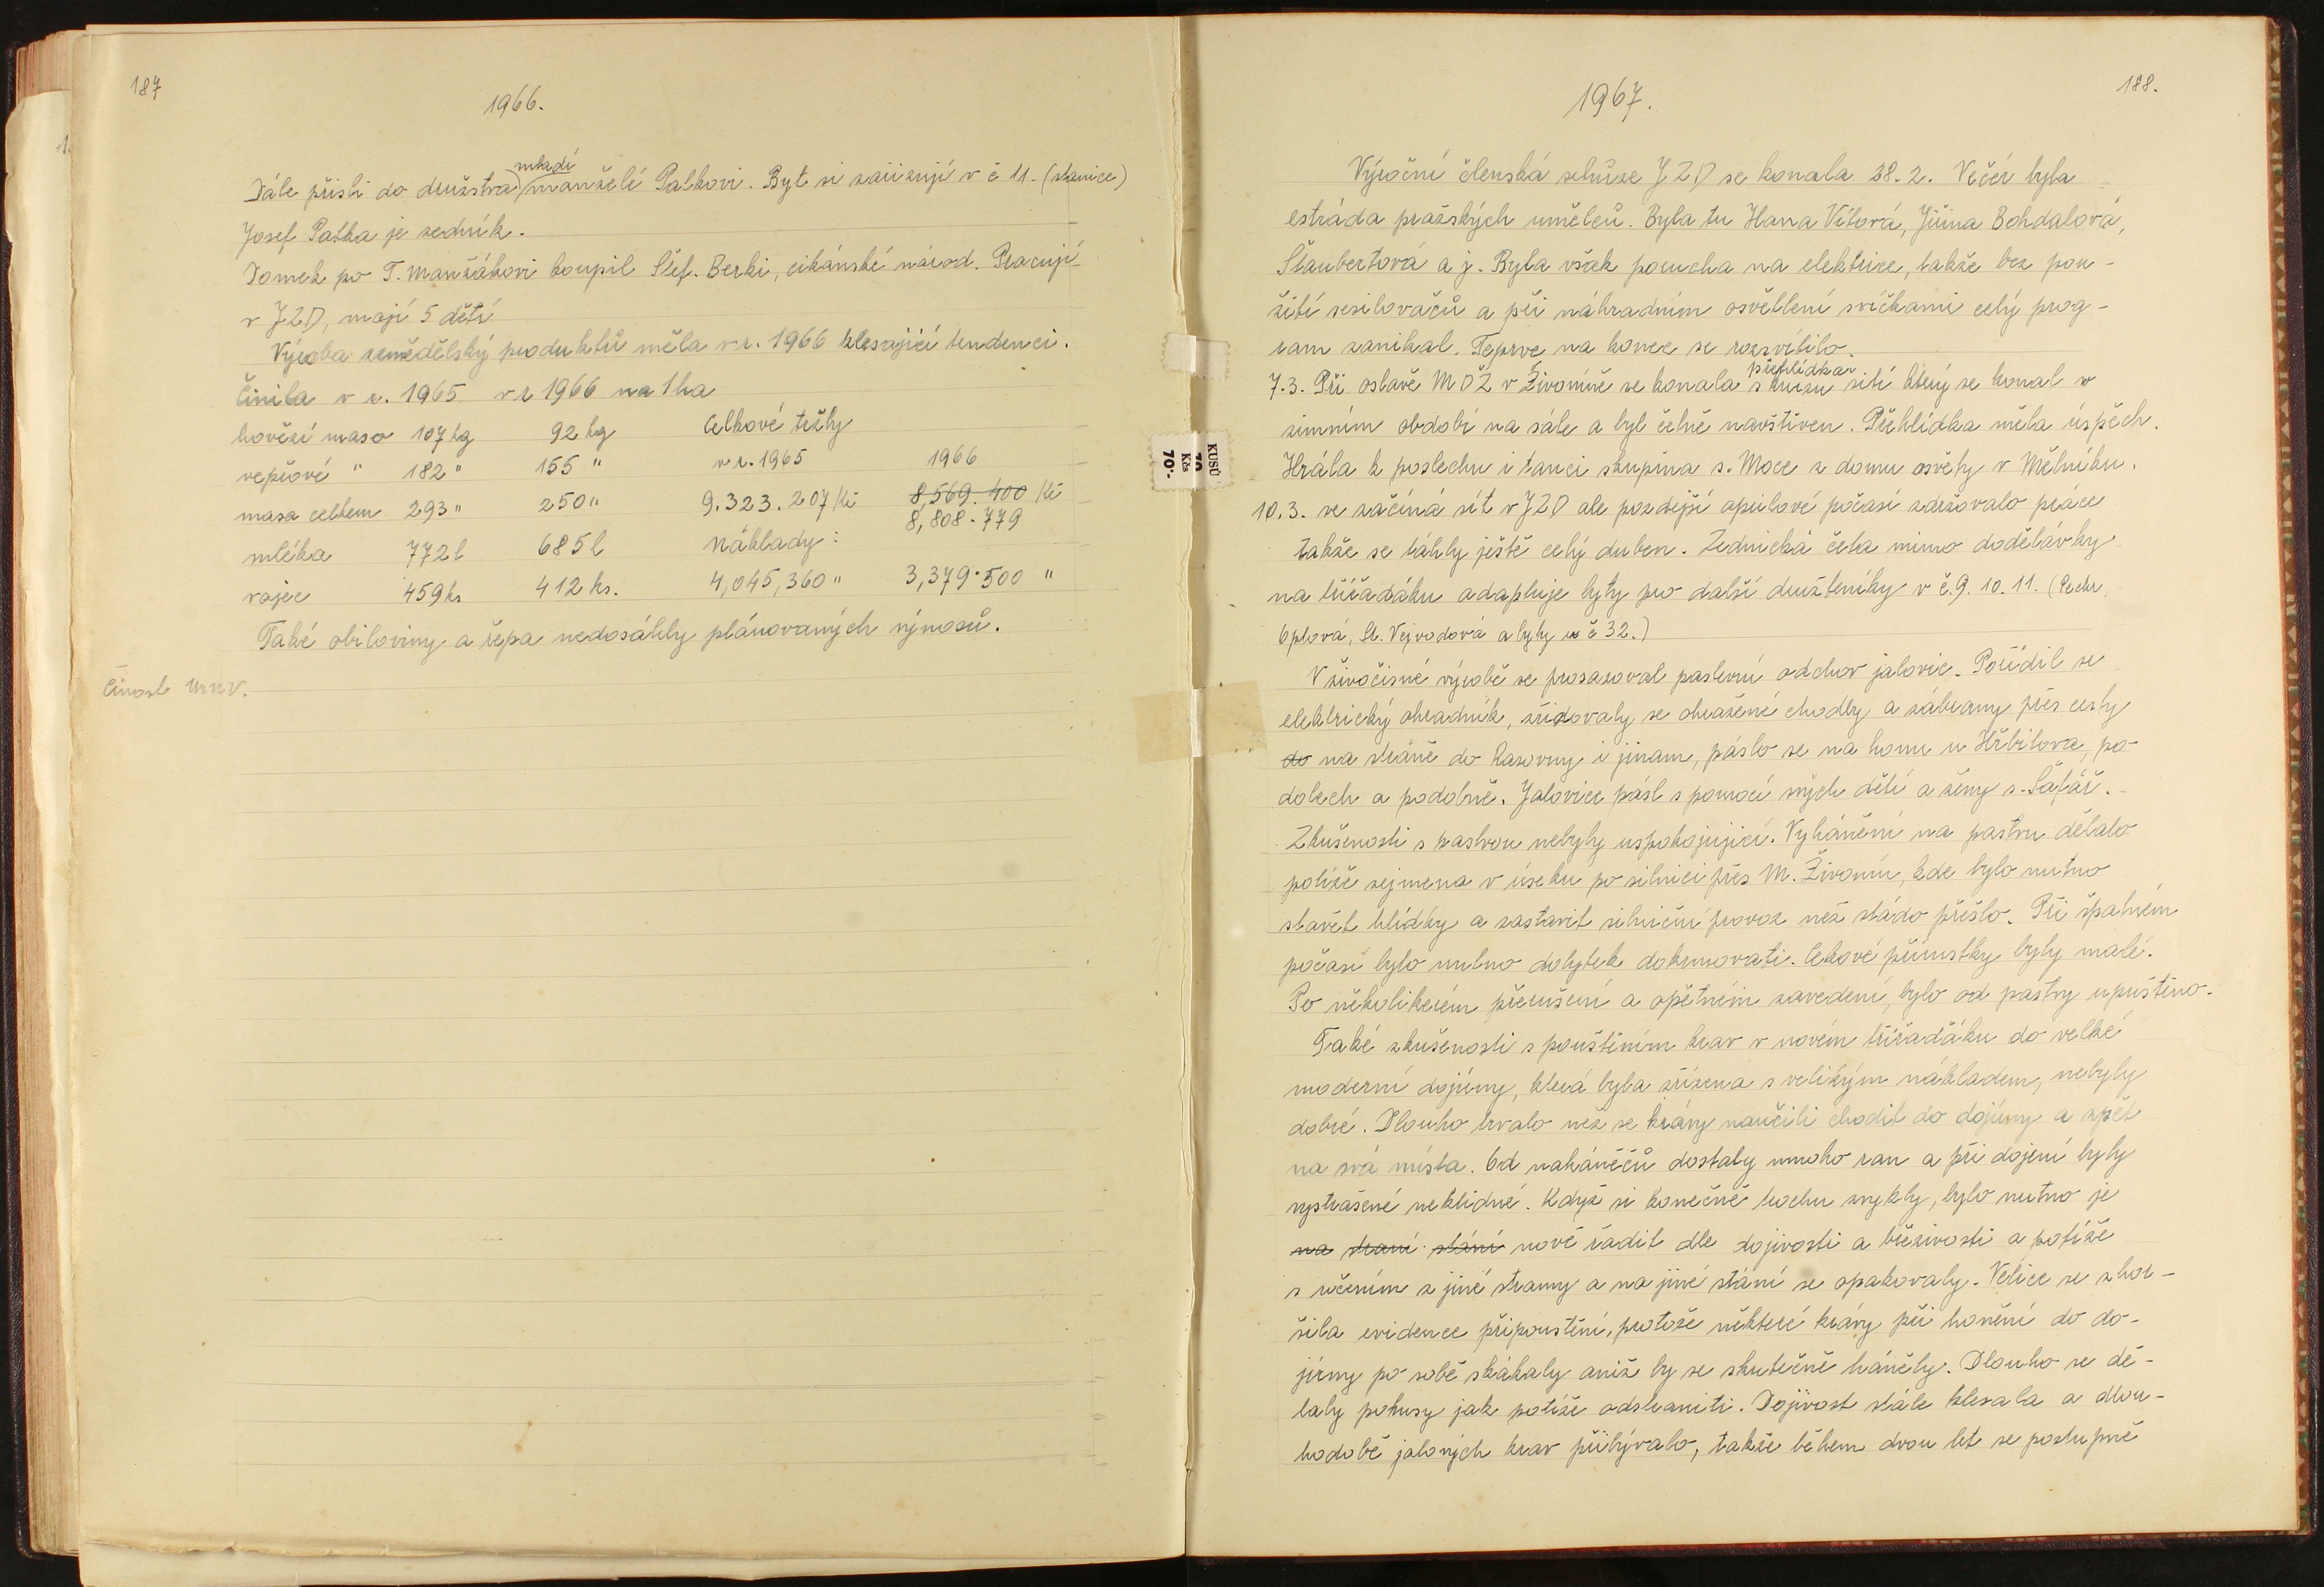 187
1966.
mladí
Dále přišli do družstva manželé Patkovi. Byt si zařizují v č 11. (stanice)
Josef Patka je zedník.
Domek po T. Manžákovi koupil Štef. Berki, cikánské národ. Pracují
v JZD, mají 5 dětí
Výroba zemědělský produktů měla v r. 1966 klesající tendenci.
Činila v r. 1965 v r 1966 na 1 ha
hovězí maso 107 kg 92 kg Celkové tržby
vepřové " 182 " 155 " v r. 1965 1966
masa celkem 293 " 250 " 9.323.207 Kč 8,569.400 Kč
8,808.779
mléka 772 l 685 l Náklady:
vajec 459 ks 412 ks. 4,045,360 " 3,379.500 "
Také obiloviny a řepa nedosáhly plánovaných výnosů.
Činost MNV.
188.
1967.
Výroční členská schůze JZD se konala 28.2. Večer byla
estráda pražských umělců. Byla tu Hana Vítová, Jiřina Bohdalová,
Štaubertová a j. Byla však porucha na elektrice, takže bez pou-
žití zesilovačů a při náhradním osvětlení svíčkami celý prog-
ram zanikal. Teprve na konec se rozsvítilo.
přehlídka
7.3. Při oslavě MDŽ v Živoníně se konala s kursu šití který se konal v
zimním období na sále a byl četně navštíven. Přehlídka měla úspěch.
Hrála k poslechu i tanci skupina s. Moce z domu osvěty v Mělníku.
10.3. se začíná sít v JZD ale pozdější aprilové počasí zdržovalo práce
takže se táhly ještě celý duben. Zednická četa mimo dodělávky
na třířadáku adaptuje byty pro další družteníky v č. 9. 10. 11. (Pechr,
Oplová, St. Vejvodová a byty u č 32.)
V živočisné výrobě se prosazoval pastevní odchov jalovic. Pořídil se
elektrický ohradník, zřizovaly se ohražené chodby a zábrany přes cesty
do na stráně do Rasovny i jinam, páslo se na horu u Hřbitova, po
dolech a podobně. Jalovice pásl s pomocí svých dětí a ženy s. Šafář.
Zkušenosti s pastvou nebyly uspokojující. Vyhánění na pastvu dělalo
potíže zejmena v úseku po silnici přes M. Živonín, kde bylo nutno
stavět hlídky a zastavit silniční provoz než stádo přešlo. Při špatném
počasí bylo nutno dobytek dokrmovati. Cekové přírustky byly malé.
Po několikerém přerušení a opětném zavedení, bylo od pastvy upuštěno.
Také zkušenosti s pouštěním krav v novém třířaďáku do velké
moderní dojírny, která byla zřízena s velikým nákladem, nebyly
dobré. Dlouho trvalo než se krávy naučili chodit do dojírny a zpět
na svá místa. Od naháněčů dostaly mnoho ran a při dojení byly
vystrašené neklidné. Když si konečně trochu zvykly, bylo nutno je
na stání nově řadit dle dojivosti a březivosti a potíže
s učením z jiné strany a na jiné stání se opakovaly. Velice se zhor-
šila evidence připouštění, protože některé krávy při honění do do-
jírny po sobě skákaly aniž by se skutečně háněly. Dlouho se dě-
laly pokusy jak potíže odstraniti. Dojivost stále klesala a dlou-
hodobě jalových krav přibývalo, takže během dvou let se postupně
KUSŮ
Kčs
70.